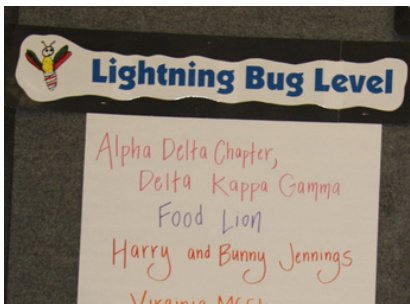 Lightning Bug Level
Alpha Delta Chapter,
Delta Kappa Gamma
Food Lion
Harry and Bunny Jennings
Virginia